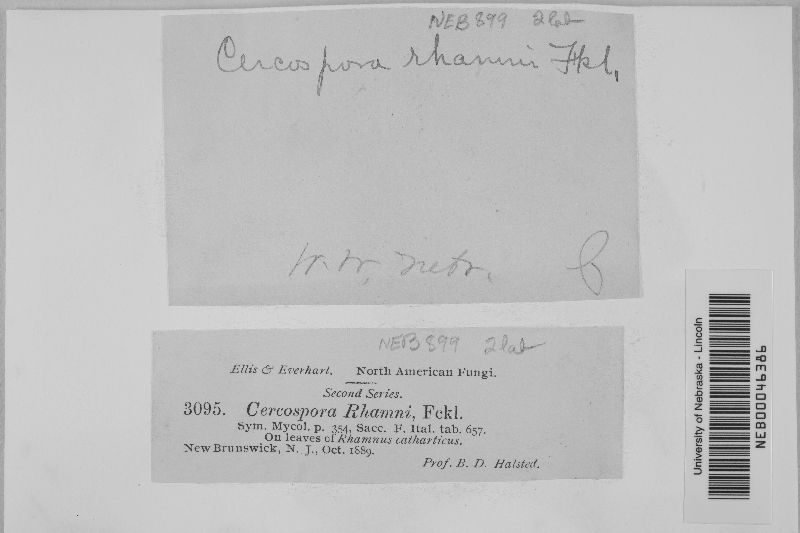 NEB 899 2 lab
Cercospora rhamni Fkl.
NEB 899 2 lab
Ellis & Everhart. North American Fungi.
Second Series.
3095. Cercospora Rhamni, Fckl.
Sym. Mycol. p. 354, Sacc. F. Ital. tab. 657.
On leaves of Rhamnus catharticus.
New Brunswick, N. J., Oct. 1889.
Prof. B. D. Halsted.
University of Nebraska - Lincoln
NEB00046386